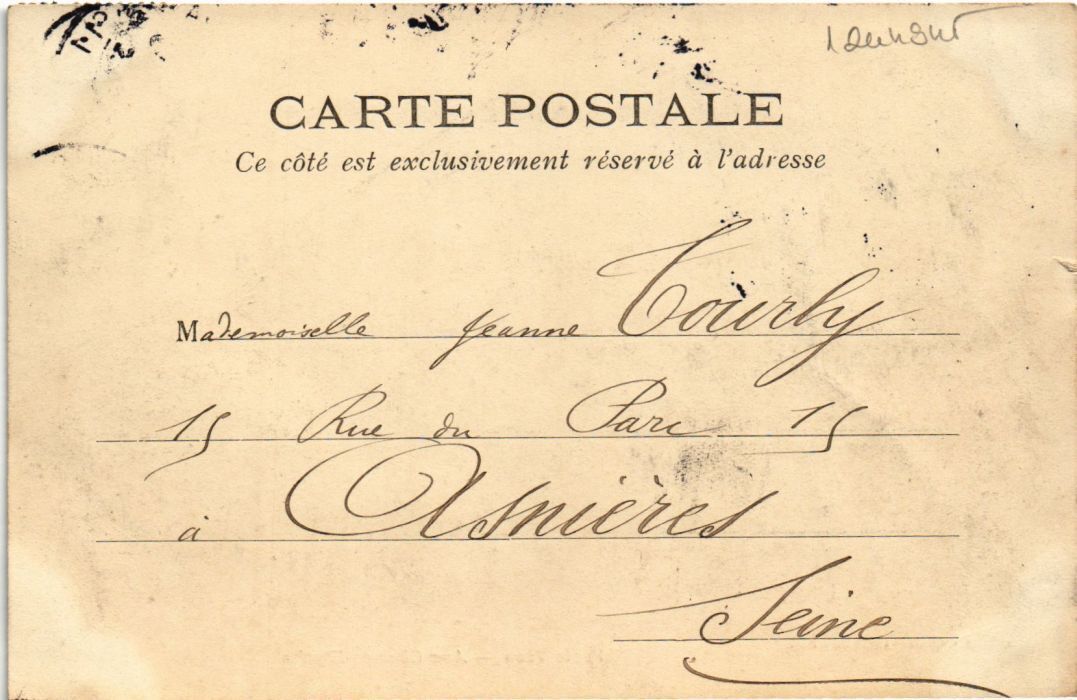 CARTE POSTALE
Ce côté est exclusivement réservé à l'adresse
Mademoiselle Jeanne Tourly
15 Rue du Parc 15
à Asnières
Seine